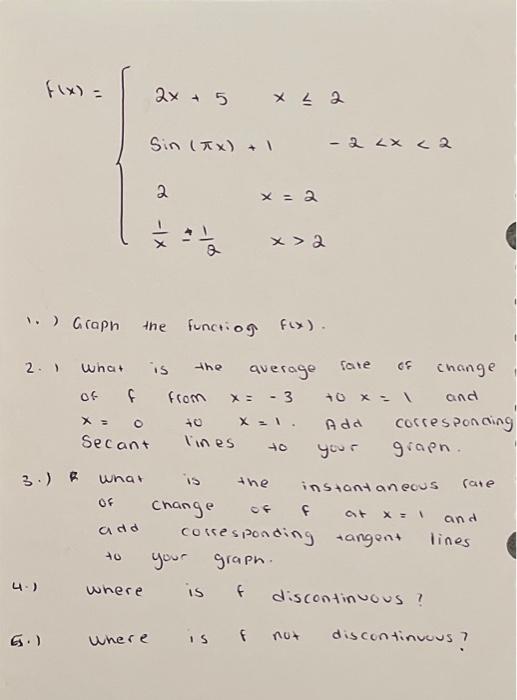 f(x) =
2x + 5 x ≤ 2
Sin (πx) + 1 - 2 < x < 2
2 x = 2
1/x + 1/2 x > 2
1.) Graph the function f(x).
2.) What is the average rate of change
of f from x = - 3 to x = 1 and
x = 0 to x = 1. Add corresponding
Secant lines to your graph.
3.) What is the instantaneous rate
of change of f at x = 1 and
add corresponding tangent lines
to your graph.
4.) where is f discontinuous?
5.) where is f not discontinuous?